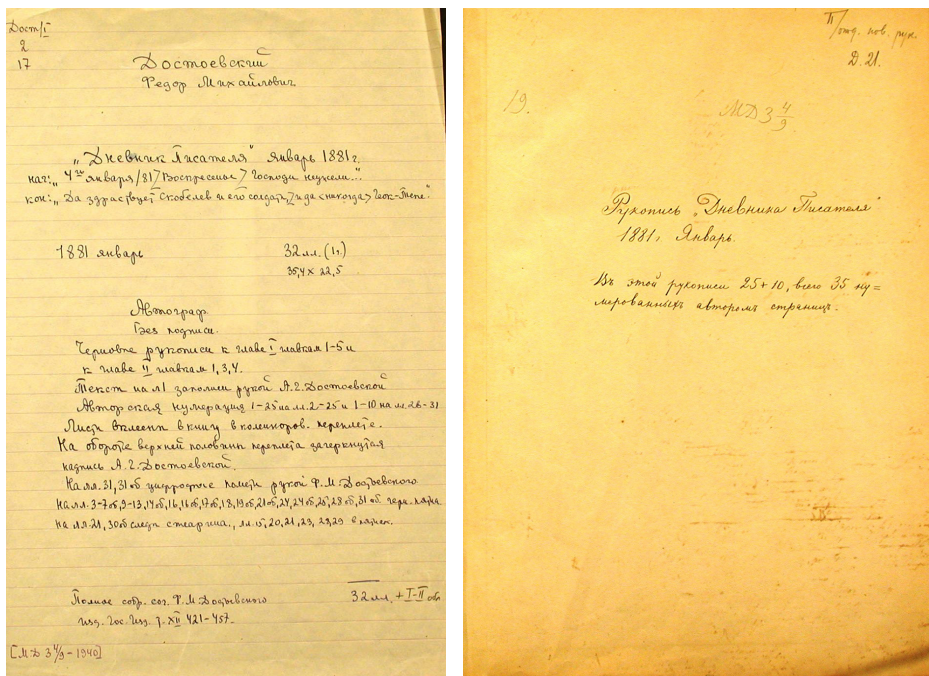 Дост/I
2
17
Достоевский
Федор Михайлович
„Дневник Писателя" январь 1881 г.
нач: „4го января/81/Воскресенье> Господи неужели..."
кон: „Да здраствует Скобелев и его солдаты, и да <никогда> Геок-Тепе."
1881 январь
32 лл. (1ч.)
35,4 х 22,5
Автограф.
Без подписи.
Черновые рукописи к главе I главкам 1-5 и
к главе II главкам 1, 3, 4.
Текст на л1 записан рукой А.Г. Достоевской
Авторская нумерация 1-25 на лл. 2-25 и 1-10 на лл 26-31
Листы вклеены в книгу в коленкоров. переплете.
На обороте верхней половины переплета зачеркнутая
надпись А.Г. Достоевской.
На лл. 31, 31об цифровые пометы рукой Ф.М. Достоевского
На лл. 3-7об, 9-13, 14об, 16, 16об, 17об, 18, 19об, 21об, 24, 24об, 25, 28об, 31об черн. пятна
на лл. 21, 30об следы стеарина., лл. 15, 20, 21, 23, 28, 29 в пятнах.
32 лл. + I-II обл
Полное собр. соч. Ф.М. Достоевского
изд. Гос. Изд. т. XII 421-457.
[М.Д 3 4/9 - 1940]
II/отд. нов. рук.
Д. 21.
19.
МД 3 4/9.
Рукопись „Дневника Писателя"
1881, Январь.
Въ этой рукописи 25+10, всего 35 ну=
мерованныхъ авторомъ страницъ.